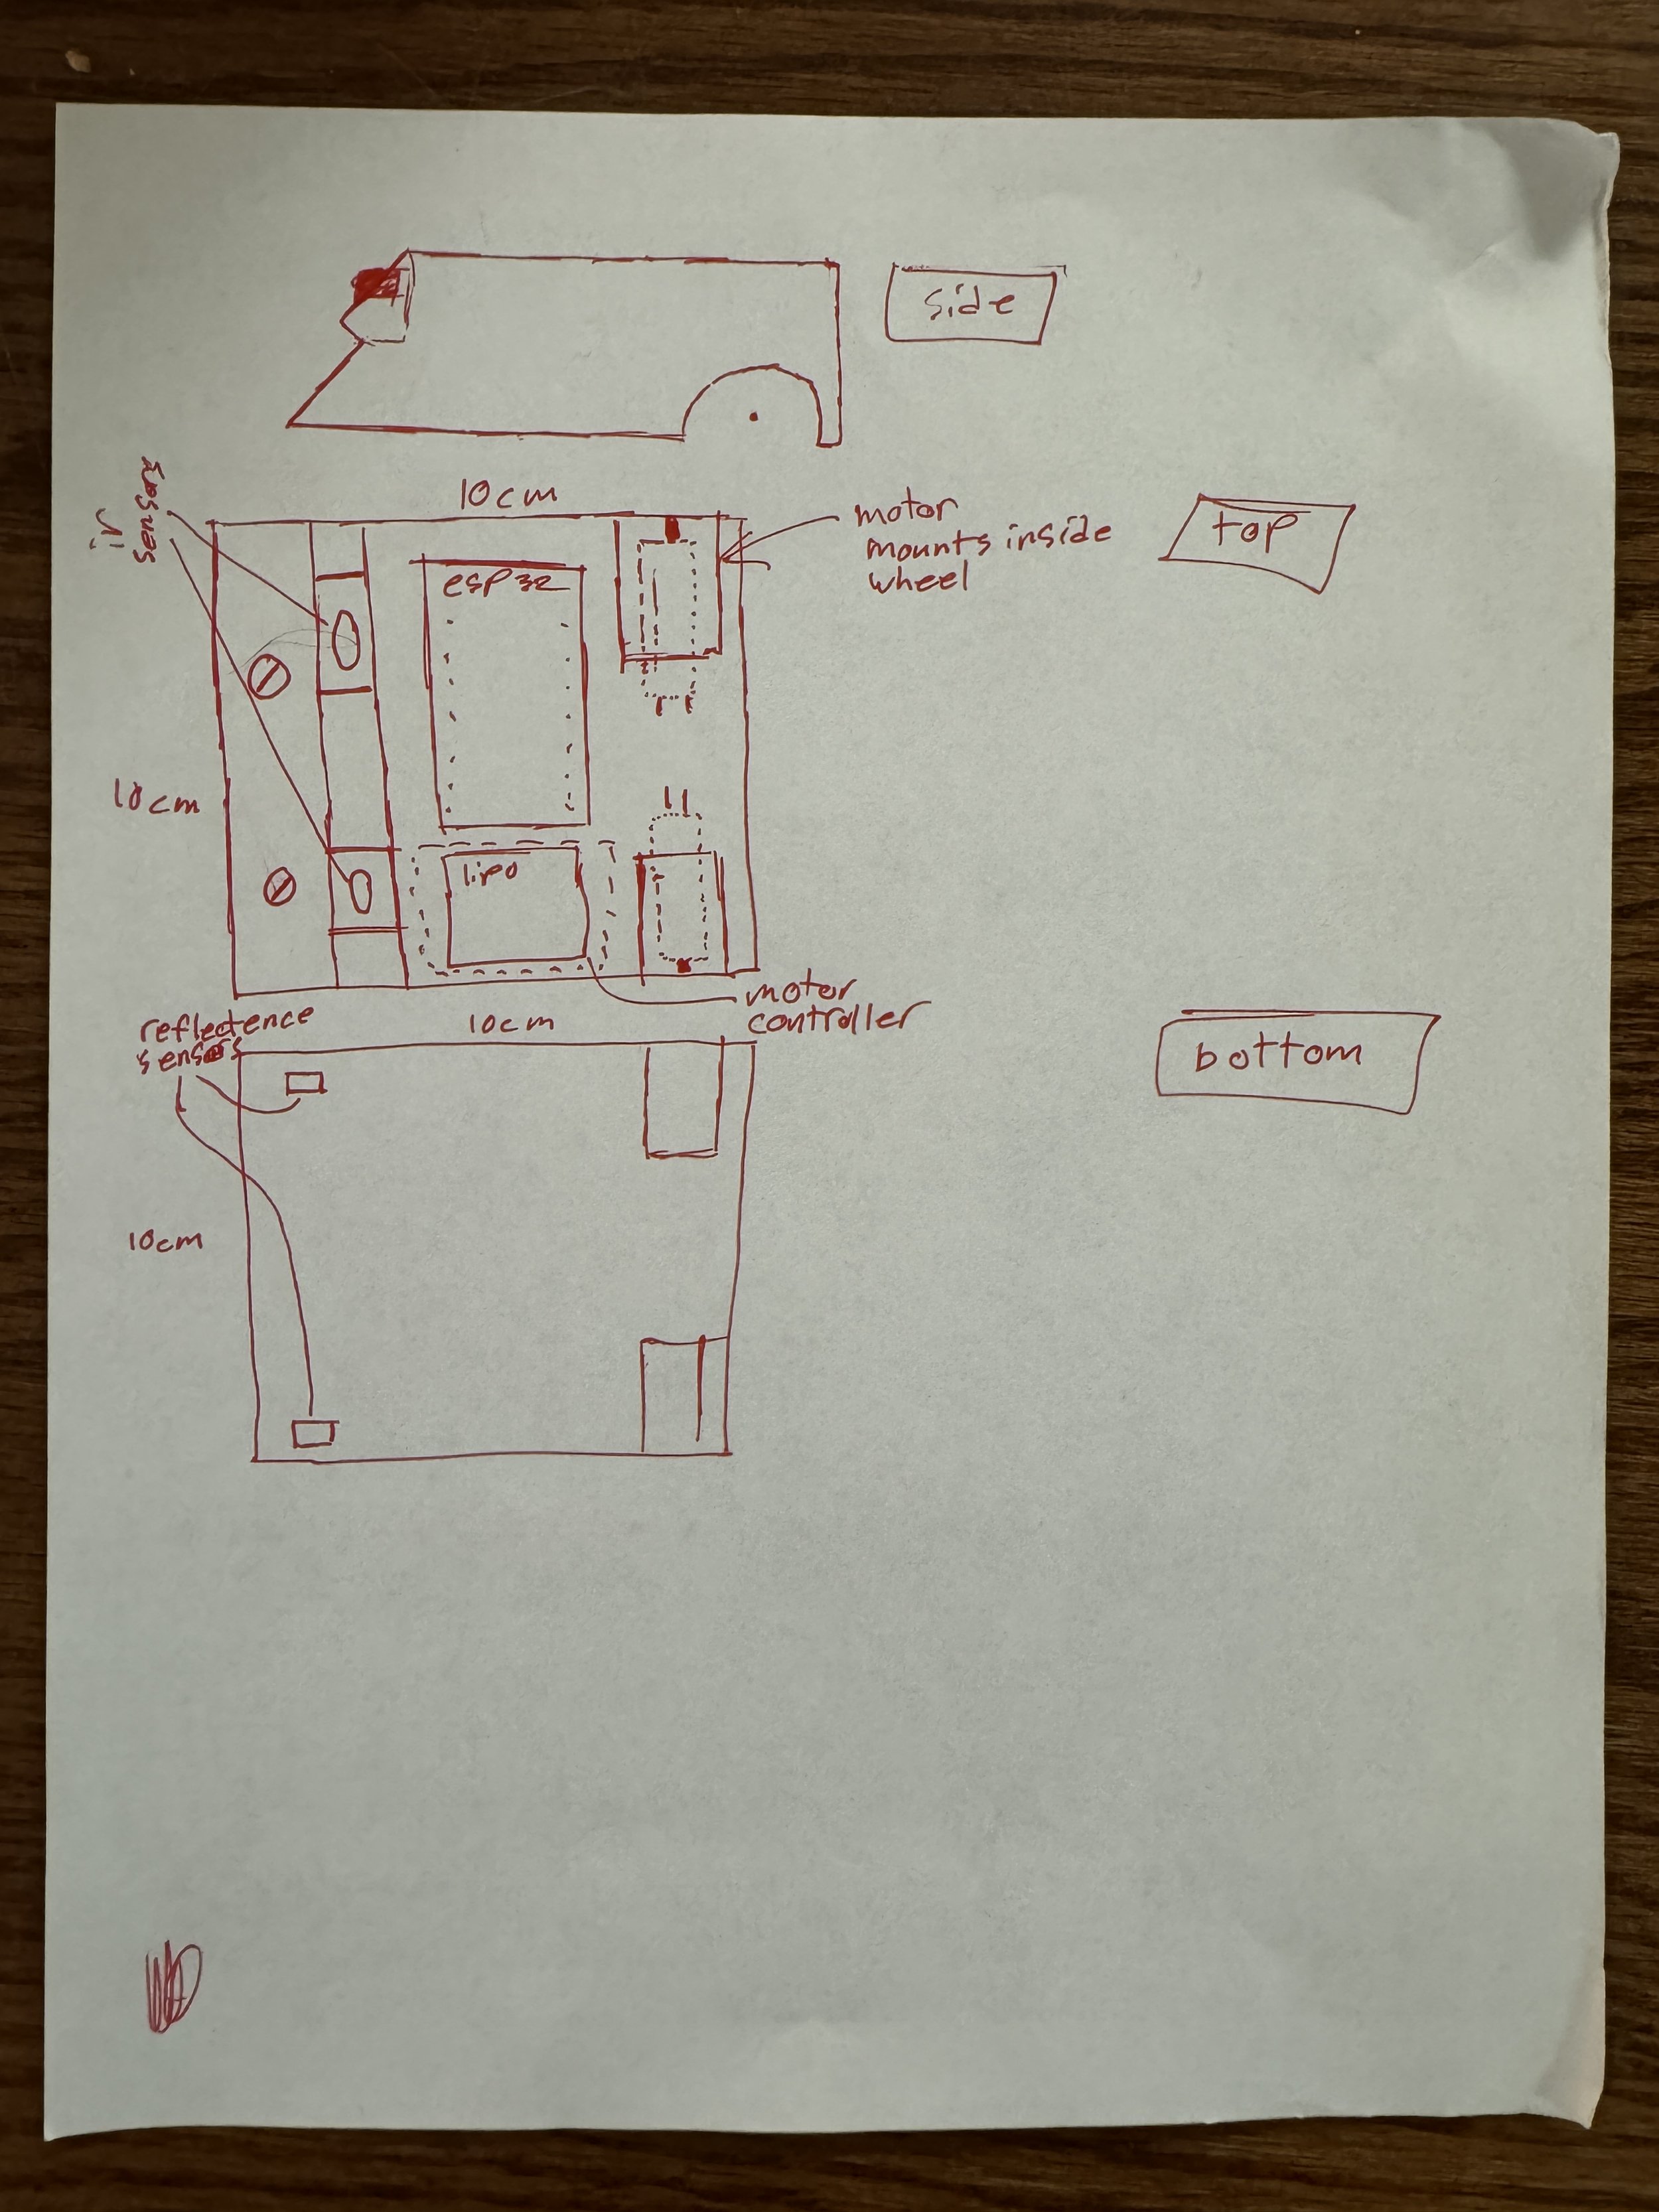 side
10cm
sensors
motor
mounts inside
wheel
top
esp32
10cm
lipo
motor
controller
reflectence
sensors
10cm
bottom
10cm